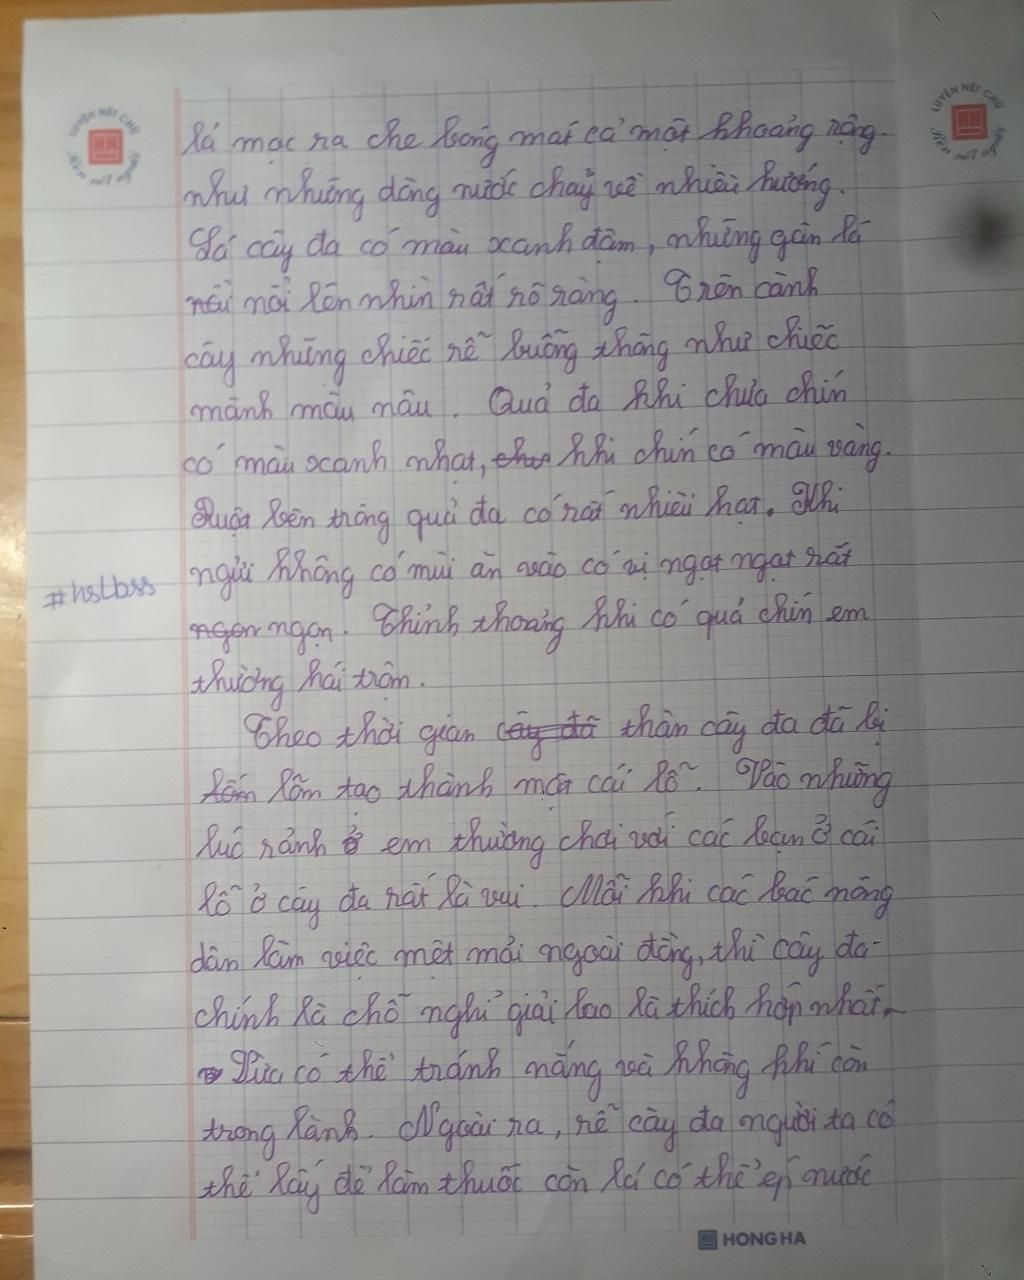 LUYỆN NÉT CHỮ
Rèn nết người
LUYỆN NÉT CHỮ
Rèn nết người
lá mọc ra che bóng mát cả một khoảng rộng.
như những dòng nước chảy về nhiều hướng.
Lá cây đa có màu xanh đậm, những gân lá
nổi nổi lên nhìn rất rõ ràng. Trên cành
cây những chiếc rễ buông thõng như chiếc
mành màu nâu. Quả đa khi chưa chín
có màu xanh nhạt, khi chín có màu vàng.
Ruột bên trong quả đa có rất nhiều hạt. Khi
ngửi không có mùi ăn vào có vị ngọt ngọt rất
#hslbss
ngon ngọn. Thỉnh thoảng khi có quả chín em
thường hái trộm.
Theo thời gian cây đã thân cây đa đã bị
lõm tạo thành một cái lỗ. Vào những
lúc rảnh ở em thường chơi với các bạn ở cái
lỗ ở cây đa rất là vui. Mỗi khi các bác nông
dân làm việc mệt mỏi ngoài đồng, thì cây đa
chính là chỗ nghỉ giải lao là thích hợp nhất.
Vừa có thể tránh nắng và không khí còn
trong lành. Ngoài ra, rễ cây đa người ta có
thể lấy để làm thuốc còn lá có thể ép nước
HONG HA